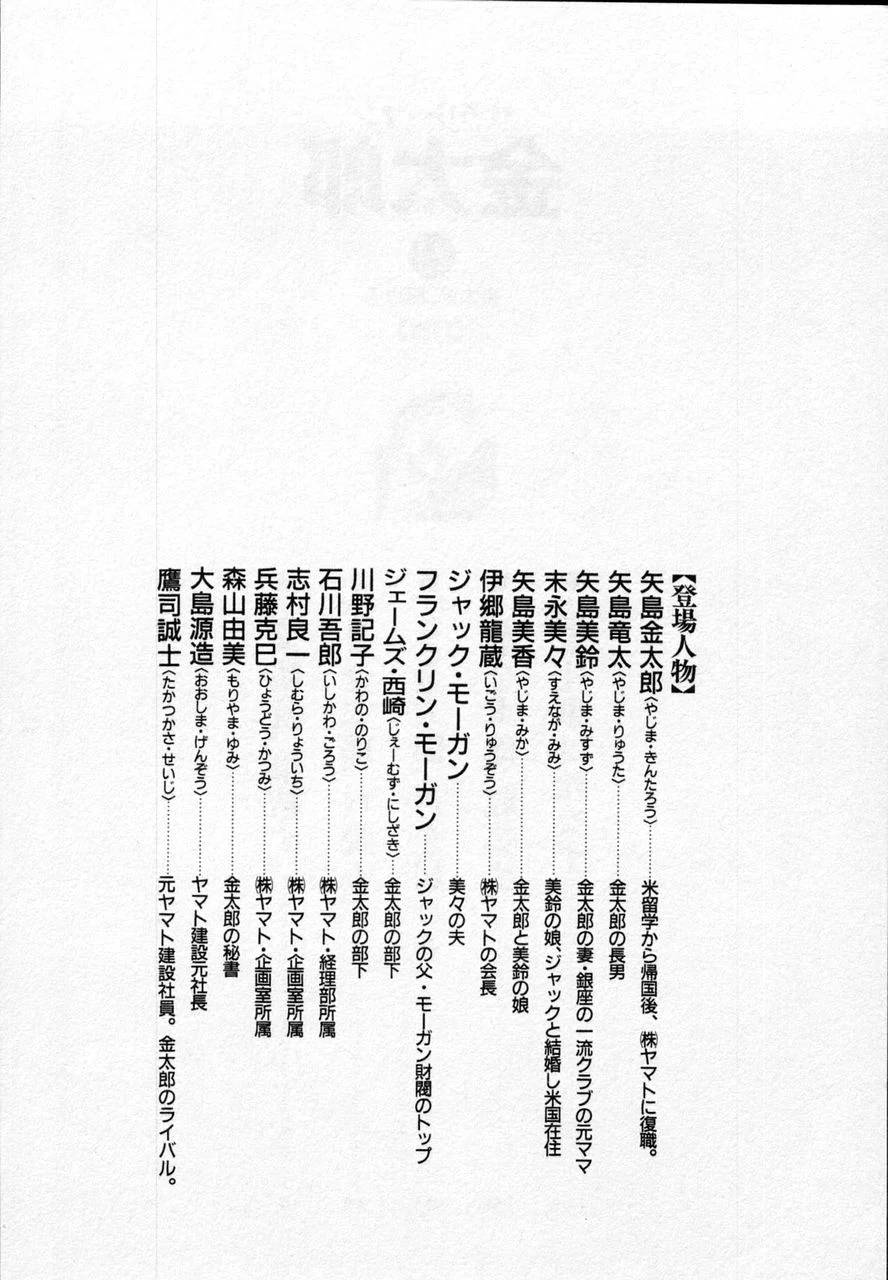 【登場人物】
矢島金太郎〈やじま・きんたろう〉………米留学から帰国後、㈱ヤマトに復職。
矢島竜太〈やじま・りゅうた〉………金太郎の長男
矢島美鈴〈やじま・みすず〉………金太郎の妻・銀座の一流クラブの元ママ
末永美々〈すえなが・みみ〉………美鈴の娘、ジャックと結婚し米国在住
矢島美香〈やじま・みか〉………金太郎と美鈴の娘
伊郷龍蔵〈いごう・りゅうぞう〉………㈱ヤマトの会長
ジャック・モーガン………美々の夫
フランクリン・モーガン………ジャックの父・モーガン財閥のトップ
ジェームズ・西崎〈じぇーむず・にしざき〉………金太郎の部下
川野記子〈かわの・のりこ〉………金太郎の部下
石川吾郎〈いしかわ・ごろう〉………㈱ヤマト・経理部所属
志村良一〈しむら・りょういち〉………㈱ヤマト・企画室所属
兵藤克巳〈ひょうどう・かつみ〉………㈱ヤマト・企画室所属
森山由美〈もりやま・ゆみ〉………金太郎の秘書
大島源造〈おおしま・げんぞう〉………ヤマト建設元社長
鷹司誠士〈たかつかさ・せいじ〉………元ヤマト建設社員。金太郎のライバル。